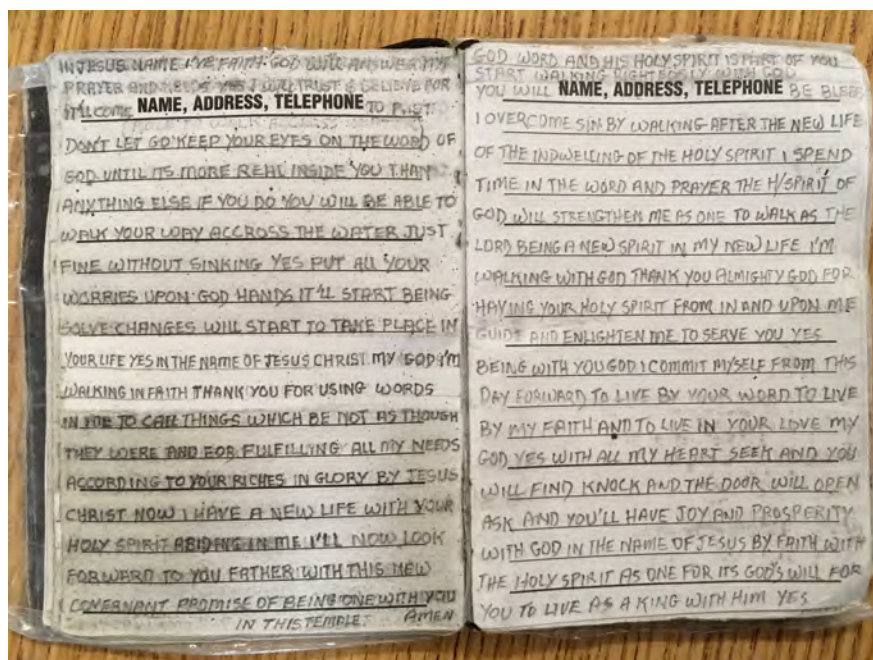 IN JESUS NAME I'VE FAITH GOD WILL ANSWER MY
PRAYER AND NEEDS YES I WILL TRUST & BELIEVE FOR
IT'LL COME NAME, ADDRESS, TELEPHONE TO PAST
DON'T LET GO KEEP YOUR EYES ON THE WORD OF
GOD UNTIL ITS MORE REAL INSIDE YOU THAN
ANYTHING ELSE IF YOU DO YOU WILL BE ABLE TO
WALK YOUR WAY ACCROSS THE WATER JUST
FINE WITHOUT SINKING YES PUT ALL YOUR
WORRIES UPON GOD HANDS IT'LL START BEING
SOLVE CHANGES WILL START TO TAKE PLACE IN
YOUR LIFE YES IN THE NAME OF JESUS CHRIST MY GOD I'M
WALKING IN FAITH THANK YOU FOR USING WORDS
IN ME TO CALL THINGS WHICH BE NOT AS THOUGH
THEY WERE AND FOR FULFILLING ALL MY NEEDS
ACCORDING TO YOUR RICHES IN GLORY BY JESUS
CHRIST NOW I HAVE A NEW LIFE WITH YOUR
HOLY SPIRIT ABIDING IN ME I'LL NOW LOOK
FORWARD TO YOU FATHER WITH THIS NEW
COVERNANT PROMISE OF BEING ONE WITH YOU
IN THIS TEMPLE AMEN
GOD WORD AND HIS HOLY SPIRIT IS PART OF YOU
START WALKING RIGHTEOSLY WITH GOD
YOU WILL NAME, ADDRESS, TELEPHONE BE BLESS
I OVERCOME SIN BY WALKING AFTER THE NEW LIFE
OF THE INDWELLING OF THE HOLY SPIRIT I SPEND
TIME IN THE WORD AND PRAYER THE H/SPIRIT OF
GOD WILL STRENGTHEN ME AS ONE TO WALK AS THE
LORD BEING A NEW SPIRIT IN MY NEW LIFE I'M
WALKING WITH GOD THANK YOU ALMIGHTY GOD FOR
HAVING YOUR HOLY SPIRIT FROM IN AND UPON ME
GUIDE AND ENLIGHTEN ME TO SERVE YOU YES
BEING WITH YOU GOD I COMMIT MYSELF FROM THIS
DAY FORWARD TO LIVE BY YOUR WORD TO LIVE
BY MY FAITH AND TO LIVE IN YOUR LOVE MY
GOD YES WITH ALL MY HEART SEEK AND YOU
WILL FIND KNOCK AND THE DOOR WILL OPEN
ASK AND YOU'LL HAVE JOY AND PROSPERITY
WITH GOD IN THE NAME OF JESUS BY FAITH WITH
THE HOLY SPIRIT AS ONE FOR ITS GOD'S WILL FOR
YOU TO LIVE AS A KING WITH HIM YES